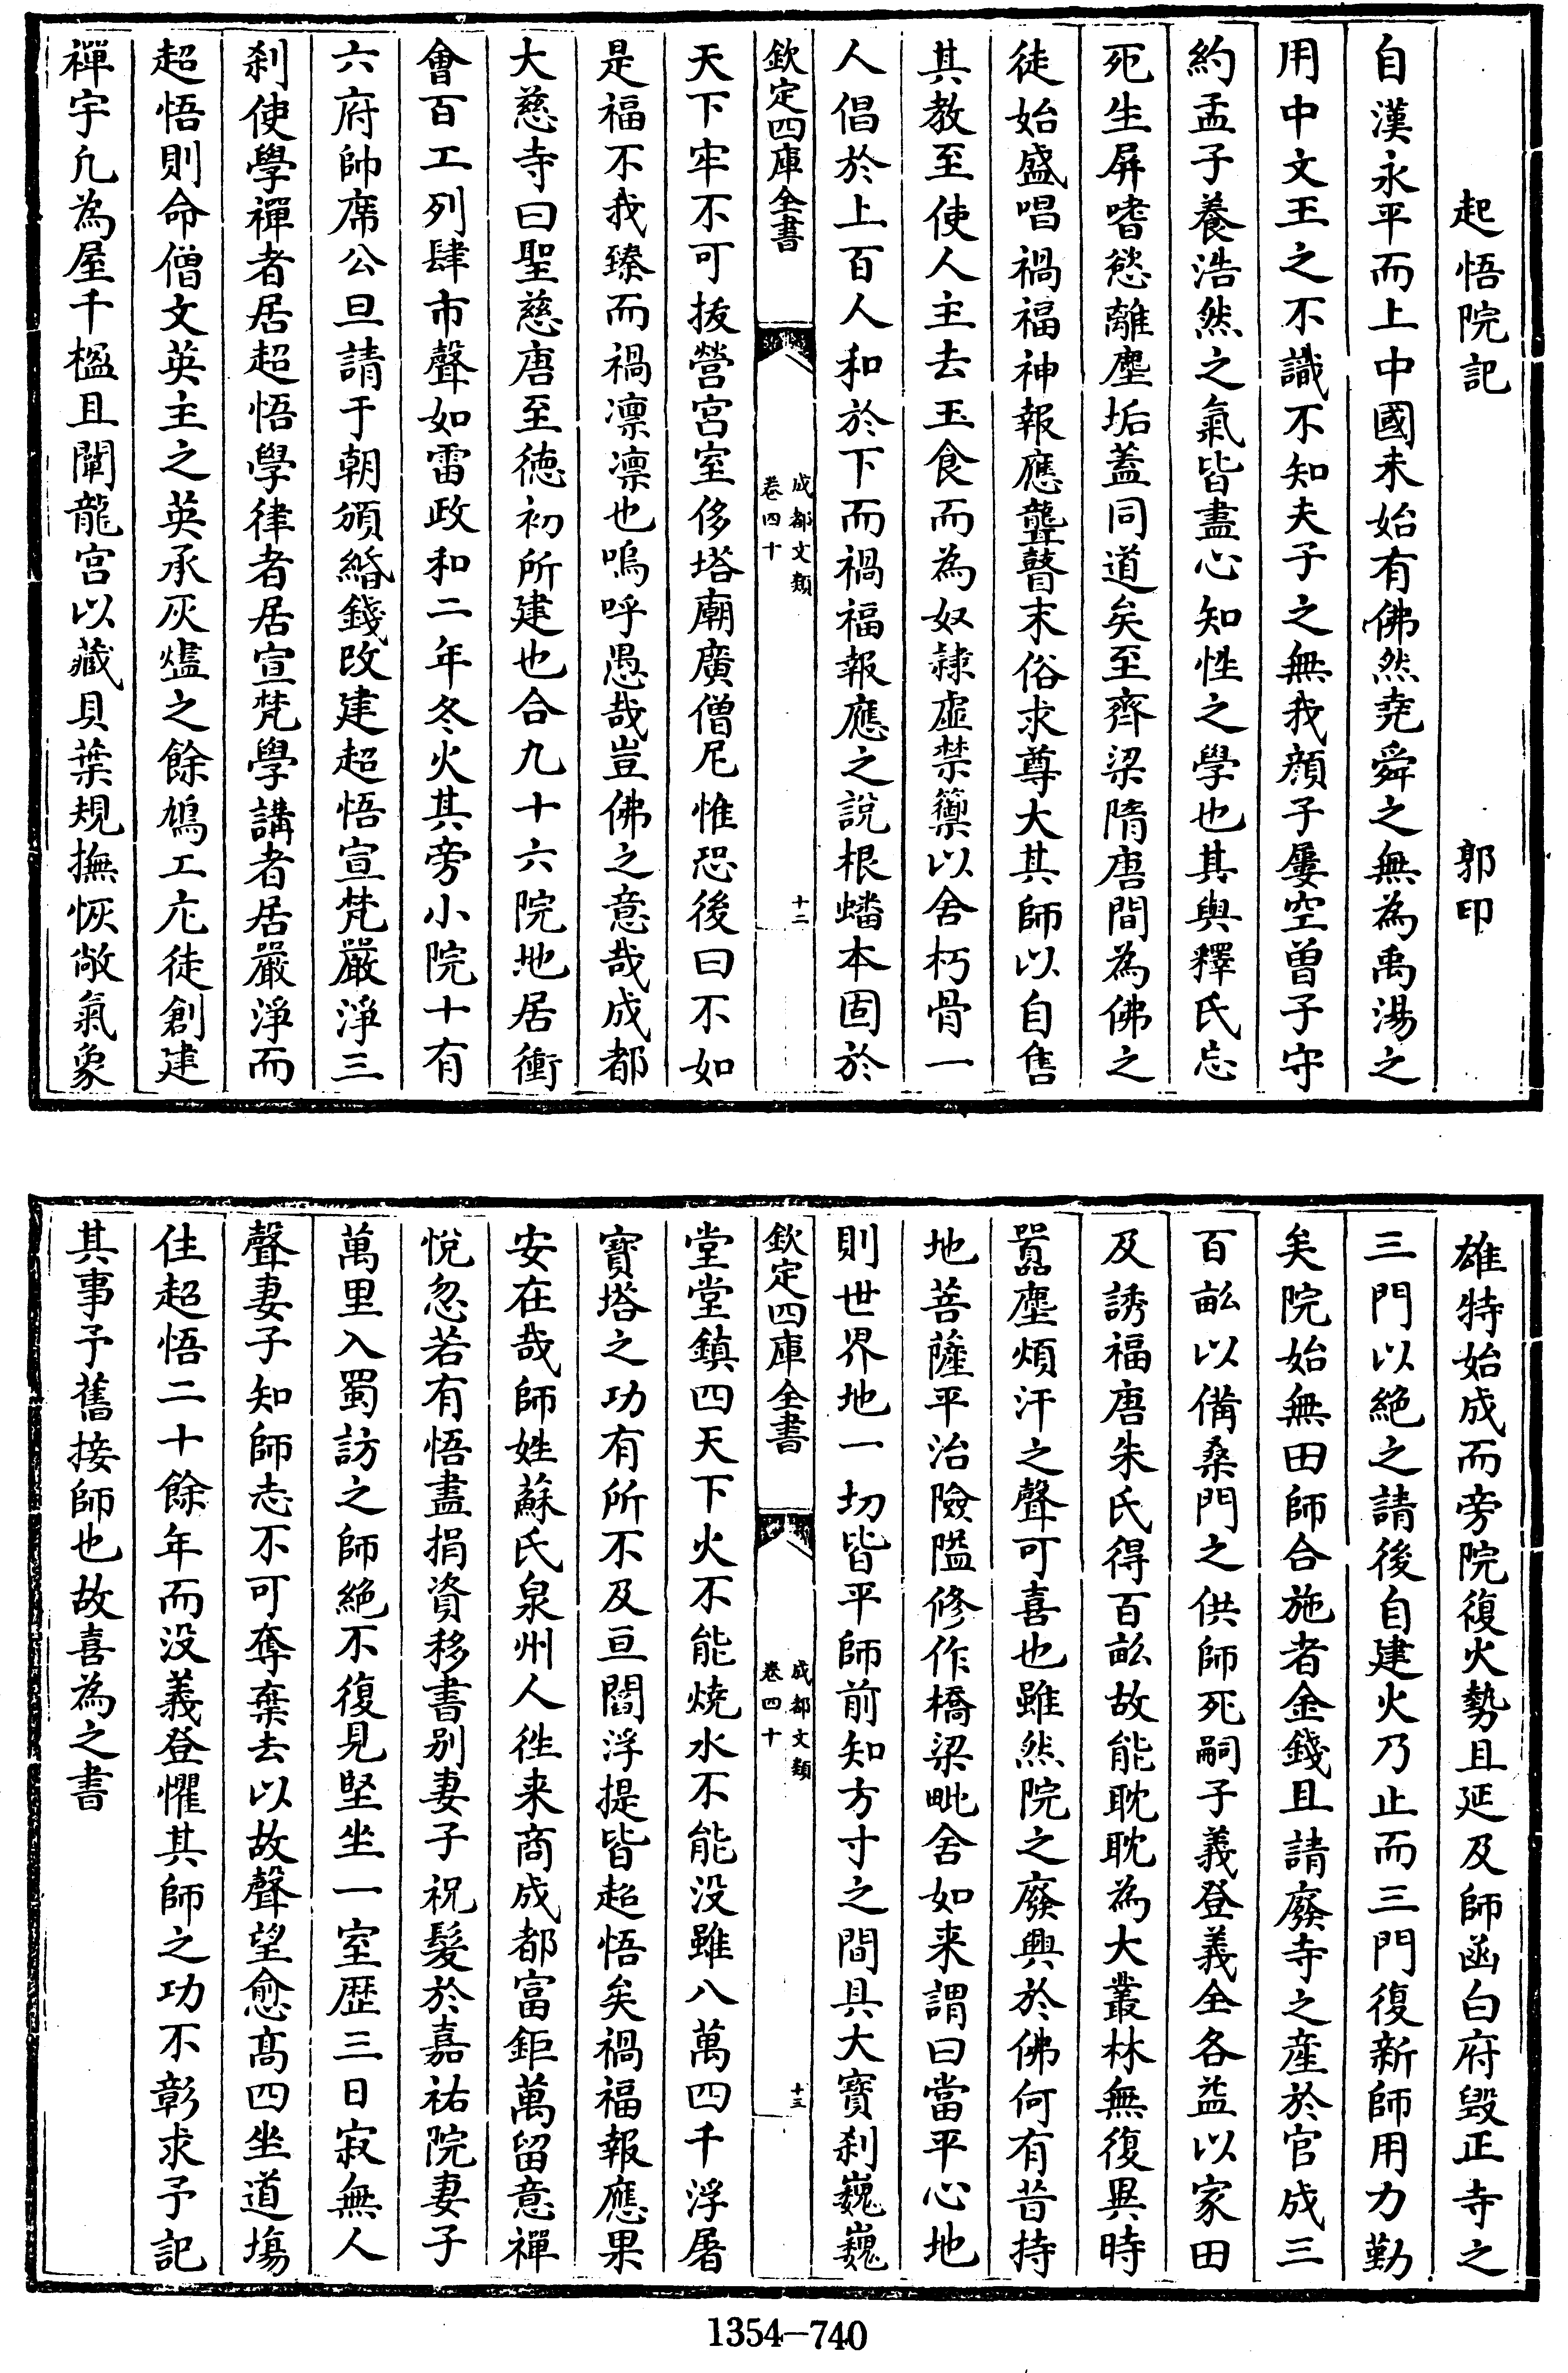 起悟院記　郭印
自漢永平而上中國未始有佛然堯舜之無為禹湯之
用中文王之不識不知夫子之無我顔子屢空曽子守
約孟子養浩然之氣皆盡心知性之學也其與釋氏忘
死生屏嗜慾離塵垢蓋同道矣至齊梁隋唐間為佛之
徒始盛唱禍福神報應聾瞽末俗求尊大其師以自售
其教至使人主去玉食而為奴隸虛禁籞以舍朽骨一
人倡於上百人和於下而禍福報應之說根蟠本固於
欽定四庫全書
成都文類
卷四十
十二
天下牢不可拔營宫室侈塔廟廣僧尼惟恐後曰不如
是福不我臻而禍凛凛也嗚呼愚哉豈佛之意哉成都
大慈寺曰聖慈唐至徳初所建也合九十六院地居衝
會百工列肆市聲如雷政和二年冬火其旁小院十有
六府帥席公旦請于朝頒緡錢改建超悟宣梵嚴淨三
刹使學禪者居超悟學律者居宣梵學講者居嚴淨而
超悟則命僧文英主之英承灰燼之餘鳩工庀徒創建
禪宇凡為屋千楹且闡龍宫以藏貝葉規撫恢敞氣象
雄特始成而旁院復火勢且延及師函白府毁正寺之
三門以絶之請後自建火乃止而三門復新師用力勤
矣院始無田師合施者金錢且請廢寺之産於官成三
百畝以備桑門之供師死嗣子義登義全各益以家田
及誘福唐朱氏得百畝故能耽耽為大叢林無復異時
囂塵煩汗之聲可喜也雖然院之廢興於佛何有昔持
地菩薩平治險隘修作橋梁毗舍如来謂曰當平心地
則世界地一切皆平師前知方寸之間具大寳刹巍巍
欽定四庫全書
成都文類
卷四十
十三
堂堂鎮四天下火不能焼水不能没雖八萬四千浮屠
寳塔之功有所不及亘閻浮提皆超悟矣禍福報應果
安在哉師姓蘇氏泉州人徃来商成都富鉅萬留意禪
悅忽若有悟盡捐資移書别妻子祝髮於嘉祐院妻子
萬里入蜀訪之師絶不復見堅坐一室歴三日寂無人
聲妻子知師志不可奪棄去以故聲望愈髙四坐道塲
住超悟二十餘年而没義登懼其師之功不彰求予記
其事予舊接師也故喜為之書
1354—740